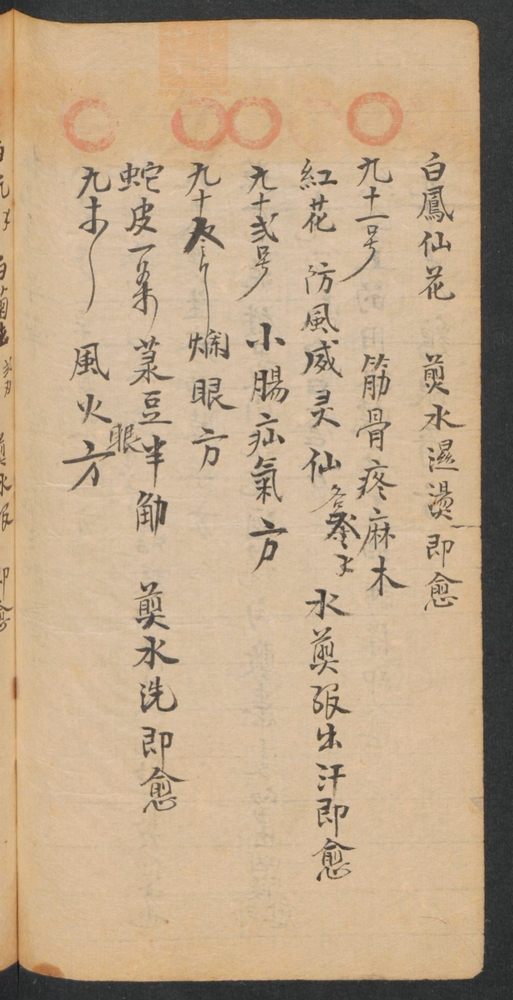 白鳳仙花 煎水濕燙即愈
九十一号 筋骨疼麻木
紅花 防風威灵仙各叁 水煎服出汗即愈
九十弍号 小腸疝氣方
九十叁 爛眼方
蛇皮一条 菉豆半觔 煎水洗即愈
九十 風火眼方